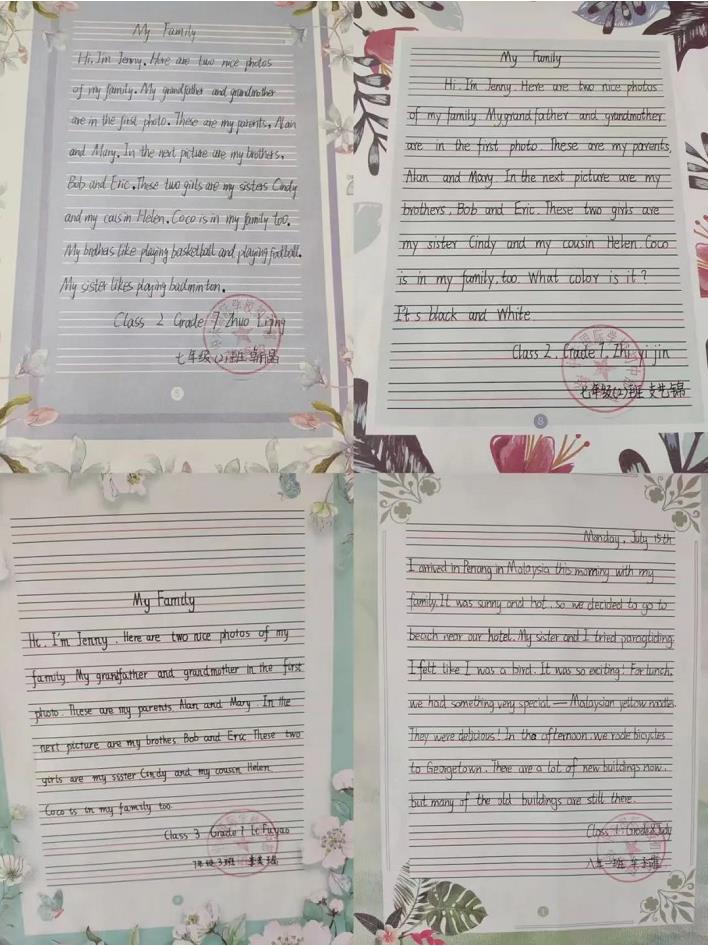 My Family
Hi, I'm Jenny. Here are two nice photos
of my family. My grandfather and grandmother
are in the first photo. These are my parents, Alan
and Mary. In the next picture are my brothers,
Bob and Eric. These two girls are my sisters Cindy
and my cousin Helen. Coco is in my family too.
My brothers like playing basketball and playing football.
My sister likes playing badminton.
Class 2 Grade 7
七年级(2)班
5
My Family
Hi. I'm Jenny. Here are two nice photos
of my family. My grand father and grandmother
are in the first photo. These are my parents,
Alan and Mary. In the next picture are my
brothers, Bob and Eric. These two girls are
my sister Cindy and my cousin Helen. Coco
is in my family, too. What color is it?
It's black and White.
Class 2. Grade 7. Zhi yi jin
七年级(2)班 支艺锦
8
My Family
Hi. I'm Jenny. Here are two nice photos of my
family My grandfather and grandmother in the first
photo. These are my parents Alan and Mary. In the
next picture are my brothes Bob and Eric These two
girls are my sister Cindy and my cousin Helen
Coco is in my family too
Class 3 Grade 7
7年级3班
Monday, July 15th
I arrived in Penang in Malaysia this morning with my
family. It was sunny and hot, so we decided to go to
beach near our hotel. My sister and I tried paragliding
I felt like I was a bird. It was so exciting! For lunch,
we had something very special — Malaysian yellow noodles.
They were delicious! In the afternoon, we rode bicycles
to Georgetown. There are a lot of new buildings now,
but many of the old buildings are still there.
Class 1 Grade 8
八年一班